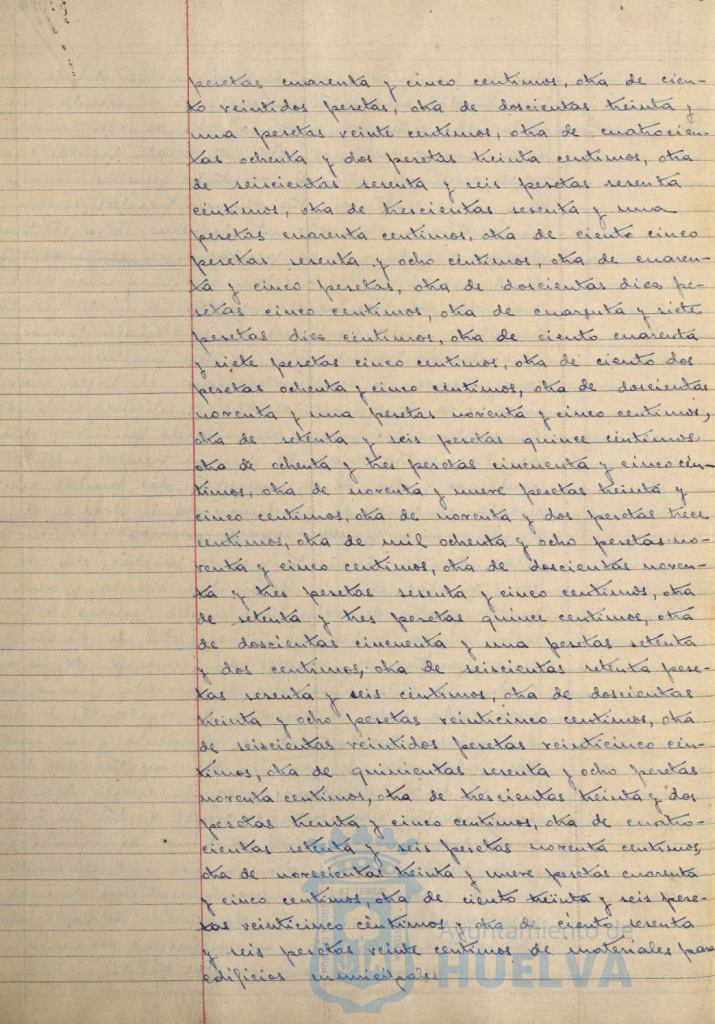 pesetas cuarenta y cinco centimos, otra de cien-
to veintidos pesetas, otra de doscientas treinta y
una pesetas veinte centimos, otra de cuatrocien-
tas ochenta y dos pesetas treinta centimos, otra
de seiscientas sesenta y seis pesetas sesenta
céntimos, otra de trescientas sesenta y una
pesetas cuarenta centimos, otra de ciento cinco
pesetas sesenta y ocho céntimos, otra de cuaren-
ta y cinco pesetas, otra de doscientas dies pe-
setas cinco centimos, otra de cuarenta y siete
pesetas dies céntimos, otra de ciento cuarenta
y siete pesetas cinco centimos, otra de ciento dos
pesetas ochenta y cinco céntimos, otra de doscientas
noventa y una pesetas noventa y cinco centimos,
otra de setenta y seis pesetas quince centimos
otra de ochenta y tres pesetas cincuenta y cinco cén-
timos, otra de noventa y nueve pesetas treinta y
cinco centimos, otra de noventa y dos pesetas trece
centimos, otra de mil ochenta y ocho pesetas no-
venta y cinco centimos, otra de doscientas noven-
ta y tres pesetas sesenta y cinco centimos, otra
de setenta y tres pesetas quince centimos, otra
de doscientas cincuenta y una pesetas setenta
y dos centimos, otra de seiscientas setenta pese-
tas sesenta y seis céntimos, otra de doscientas
treinta y ocho pesetas veinticinco centimos, otra
de seiscientas veintidos pesetas veinticinco cén-
timos, otra de quinientas sesenta y ocho pesetas
noventa centimos, otra de trescientas treinta y dos
pesetas treinta y cinco centimos, otra de cuatro-
cientas setenta y seis pesetas noventa centimos,
otra de novecientas treinta y nueve pesetas cuarenta
y cinco centimos, otra de ciento treinta y seis pese-
tas veinticinco céntimos y otra de ciento sesenta
y seis pesetas veinte centimos de materiales para
edificios municipales
Ayuntamiento de
HUELVA